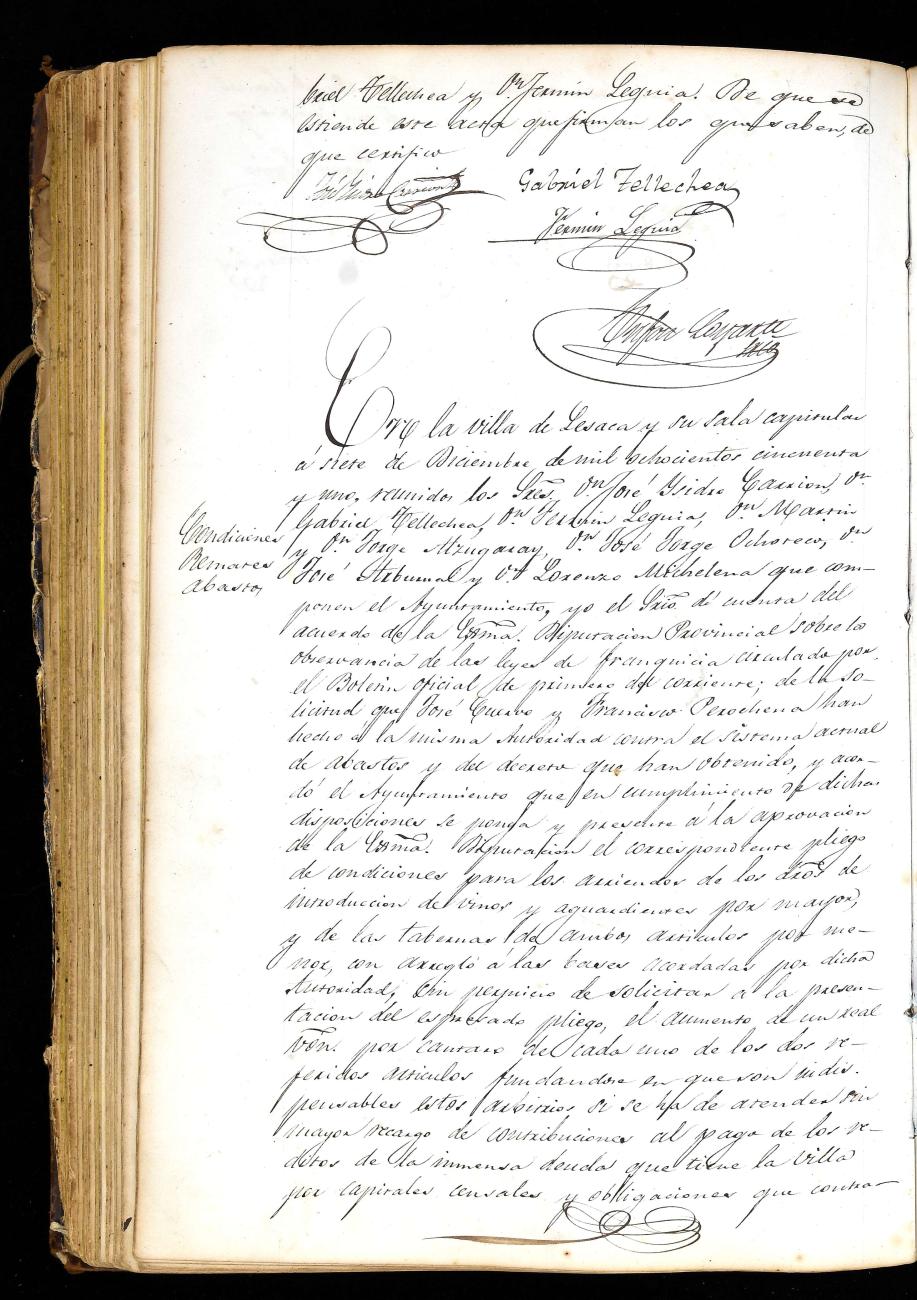 briel Tellechea y Dn Fermin Leguia. De que se
estiende este acta que firman los que saben, de
que certifico
José Ysidro Carrion
Gabriel Tellechea
Fermin Leguia
Srio
En la villa de Lesaca y su sala capitular
á siete de Diciembre de mil ochocientos cincuenta
y uno, reunidos los Sres. Dn José Ysidro Carrion, Dn
Gabriel Tellechea, Dn Fermin Leguia, Dn Martin
y Dn Jorge Alzugaray, Dn José Jorge Ochoteco, Dn
Condiciones
Remates
abastos
José Arburual y Dn Lorenzo Michelena que com-
ponen el Ayuntamiento, yo el Srio. dí cuenta del
acuerdo de la Exma. Diputacion Provincial sobre la
observancia de las leyes de franquicia circulado por
el Boletin oficial de primero del corriente; de la so-
licitud que José Cuervo y Francisco Perochena han
hecho á la misma Autoridad contra el sistema actual
de abastos y del decreto que han obtenido, y acor-
dó el Ayuntamiento que en cumplimiento de dichas
disposiciones se ponga y presente á la aprovacion
de la Exma. Diputacion el correspondiente pliego
de condiciones para los arriendos de los dros de
introduccion de vinos y aguardientes por mayor,
y de las tabernas de ambos articulos por me-
nor, con arreglo á las bases acordadas por dicha
Autoridad; sin perjuicio de solicitar a la presen-
tacion del espresado pliego, el aumento de un real
von. por cantaro de cada uno de los dos re-
feridos articulos fundandose en que son indis-
pensables estos arbitrios si se ha de atender sin
mayor recargo de contribuciones al pago de los re-
ditos de la inmensa deuda que tiene la villa
por capitales censales y obligaciones que contra-